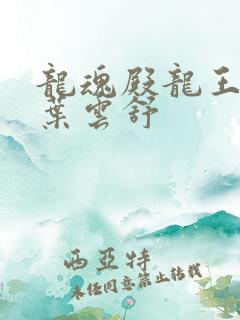 龍魂殿龍王
葉雲舒
西亞特
未經同意禁止轉載